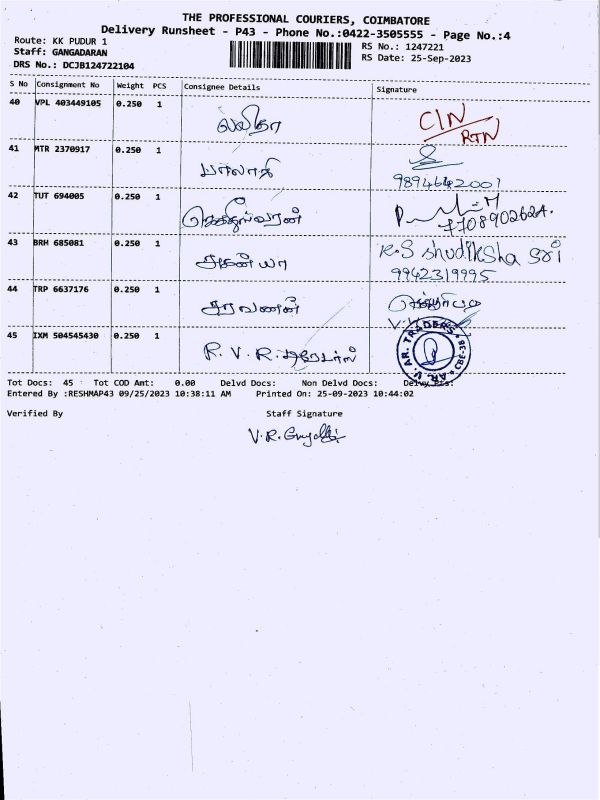 THE PROFESSIONAL COURIERS, COIMBATORE
Delivery Runsheet - P43 - Phone No.:0422-3505555 - Page No.:4
Route: KK PUDUR 1
Staff: GANGADARAN
DRS No.: DCJB124722104
RS No.: 1247221
RS Date: 25-Sep-2023
S No Consignment No Weight PCS Consignee Details Signature
40 VPL 403449105 0.250 1 லலிதா CIN/RTN
41 MTR 2370917 0.250 1 பாலாஜி
9894642001
42 TUT 694005 0.250 1
7708902622.
43 BRH 685081 0.250 1 அகன்யா R.S shudiksha sri
9942319995
44 TRP 6637176 0.250 1 சரவணன்
45 IXM 504545430 0.250 1 R. V. R. டிரேடர்ஸ் V. AR. TRADERS CBE-38
Tot Docs: 45 Tot COD Amt: 0.00 Delvd Docs: Non Delvd Docs: Delvy Pts:
Entered By :RESHMAP43 09/25/2023 10:38:11 AM Printed On: 25-09-2023 10:44:02
Verified By Staff Signature